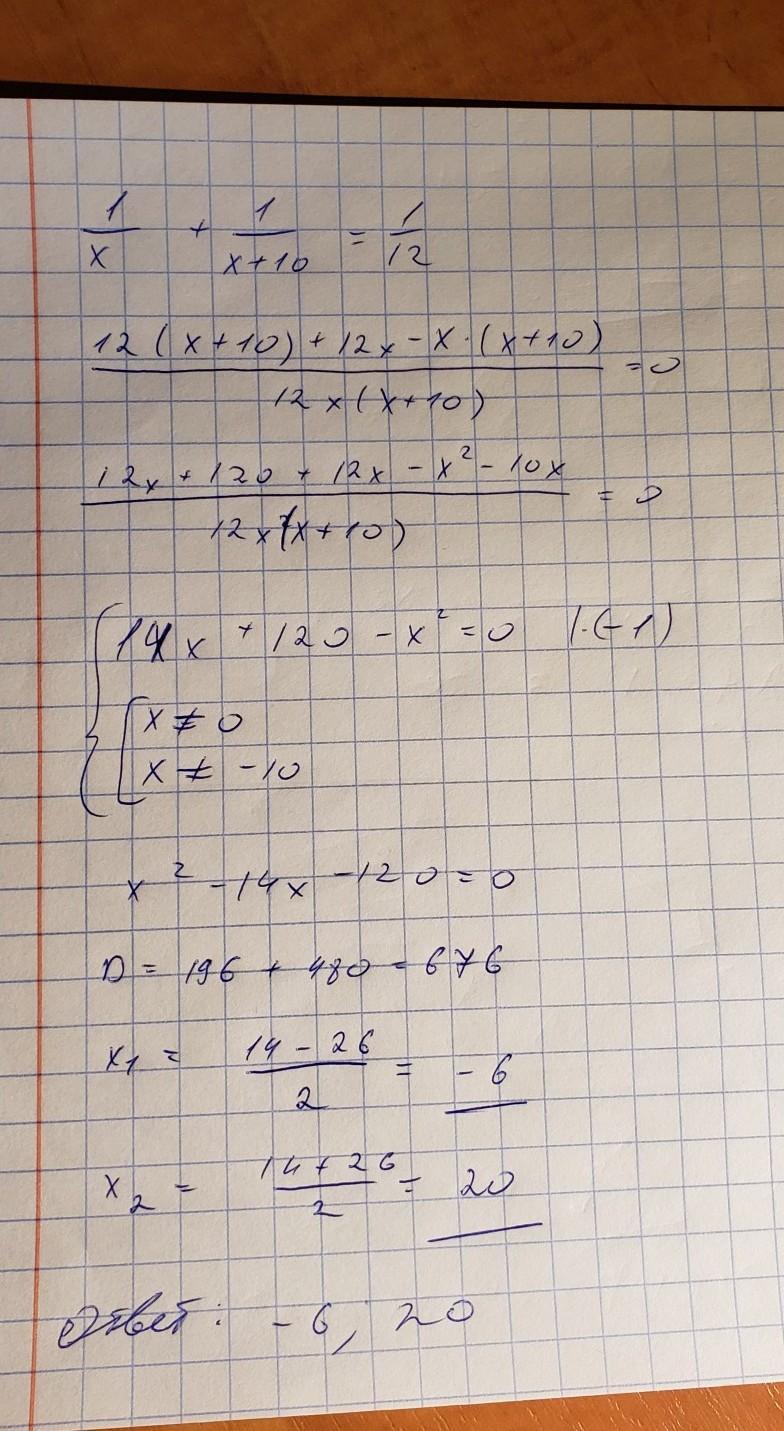 1/x + 1/(x+10) = 1/12
(12(x+10)+12x-x·(x+10))/(12x(x+10)) = 0
(12x+120+12x-x²-10x)/(12x(x+10)) = 0
{ 14x+120-x²=0 |·(-1)
[ x ≠ 0
x ≠ -10
x²-14x-120=0
D = 196 + 480 = 676
x₁ = (14-26)/2 = -6
x₂ = (14+26)/2 = 20
Ответ: -6; 20